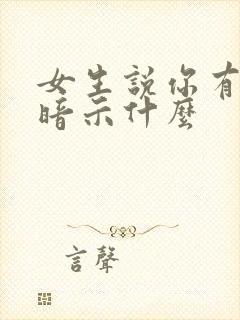 女生説你有
暗示什麼
言聲